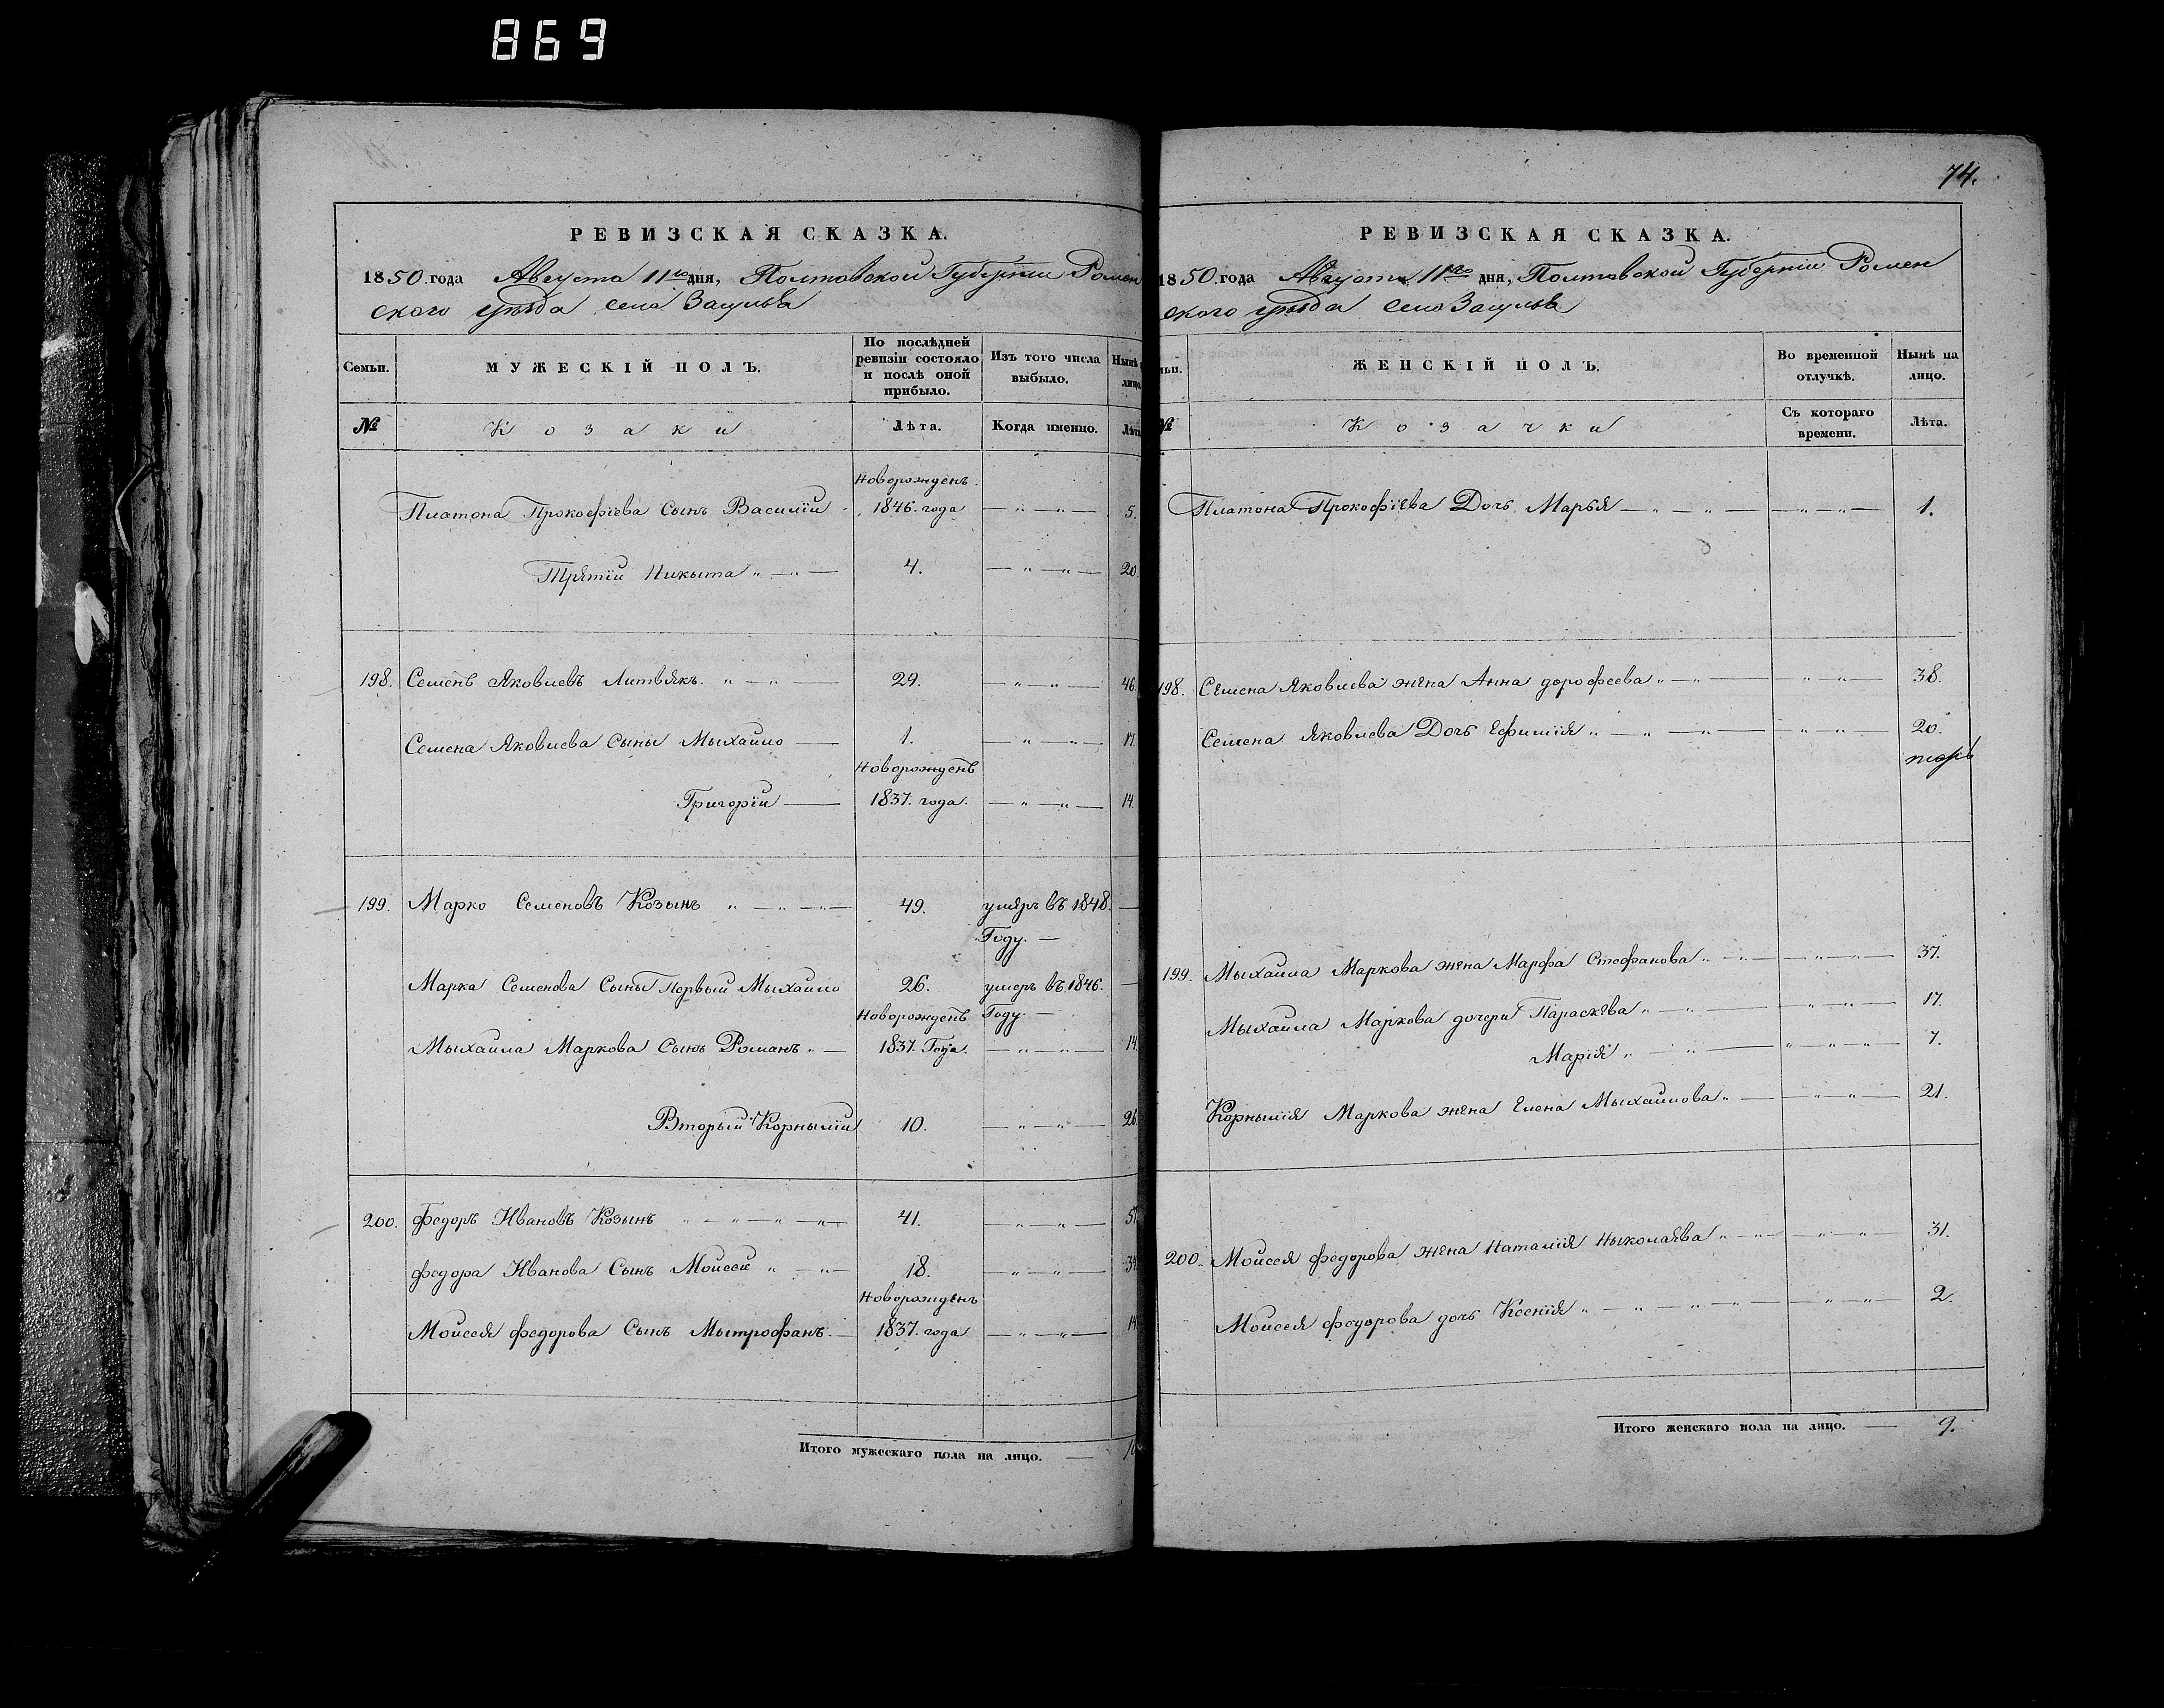 869
РЕВИЗСКАЯ СКАЗКА.
1850 года Августа 11го дня, Полтавской Губерніи Ромен
ского уѣзда села Засулья
Семьи.
МУЖЕСКІЙ ПОЛЪ.
По послѣдней ревизіи состояло и послѣ оной прибыло.
Изъ того числа выбыло.
Нынѣ
лицо
№
Козаки
Лѣта.
Когда именно.
Лѣта
Новорожденъ
Платона Прокофіева Сынъ Василій 1846. года — „ — „ — 5.
Третій Никыта „ — „ — 4. — „ — „ — 20.
198. Семенъ Яковлевъ Литвякъ. „ — „ — 29. — „ — „ — 46.
Семена Яковлева Сыны Мыхайло — 1. — „ — „ — 17.
Новорожденъ
Григорій — 1837. года. — „ — „ — 14.
199. Марко Семеновъ Козынъ „ — „ — „ — 49. умеръ въ 1848. —
Году. —
Марка Семенова Сыны Первый Мыхайло 26. умеръ въ 1846. —
Новорожденъ Году. —
Мыхайла Маркова Сынъ Романъ „ — 1837. Года. — „ — „ — 14.
Вторый Корнылій 10. — „ — „ — 26.
200. Федоръ Ивановъ Козынъ „ — „ — „ — „ — 41. — „ — „ — 57.
Федора Иванова Сынъ Моисей „ — „ — 18. — „ — „ — 34.
Новорожденъ
Моисея Федорова Сынъ Мытрофанъ. — 1837. года — „ — „ — 14.
Итого мужескаго пола на лицо. — 10
74.
РЕВИЗСКАЯ СКАЗКА.
1850 года Августа 11го дня, Полтавской Губерніи Ромен
ского уѣзда села Засулья
ьи.
ЖЕНСКІЙ ПОЛЪ.
Во временной отлучкѣ.
Нынѣ на лицо.
№
Козачки
Съ котораго времени.
Лѣта.
Платона Прокофіева Дочь Марья — „ — „ — — „ — „ — 1.
198. Семена Яковлева жена Анна дорофеева „ — „ — „ — „ — 38.
Семена Яковлева Дочь Ефимія „ — „ — „ — „ — „ — 20.
199. Мыхайла Маркова жена Марфа Стефанова „ — „ — — „ — „ — 37.
Мыхайла Маркова дочери Параскева „ — „ — — „ — „ — 17.
Марія „ — „ — „ — „ — „ — 7.
Корнылія Маркова жена Елена Мыхайлова „ — — „ — „ — 21.
200. Моисея Федорова жена Наталія Ныколаева „ — „ — — „ — „ — 31.
Моисея Федорова дочь Ксенія „ — „ — „ — „ — — „ — „ — 2.
Итого женскаго пола на лицо. — 9.